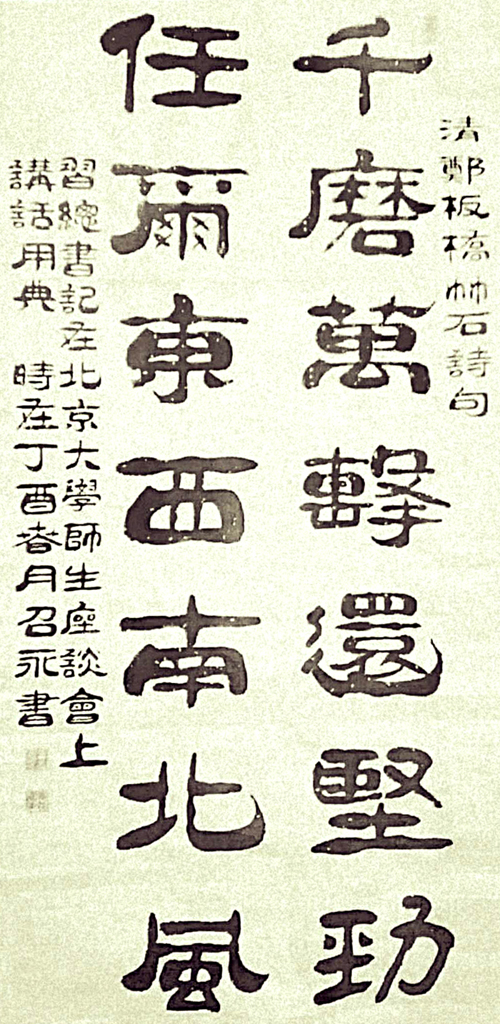 清鄭板橋竹石詩句
千磨萬擊還堅勁
任爾東西南北風
習總書記在北京大學師生座談會上
講話用典 時在丁酉春月召永書